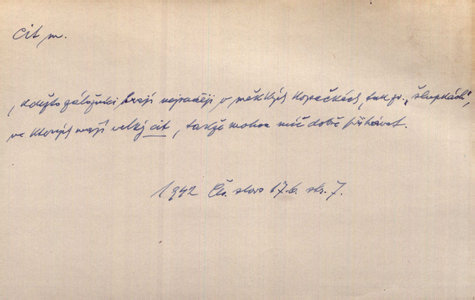 cit m.
, kdežto záložníci hrají nejraději o měkkých kopačkách, tak zv. „šlupkách“,
ve kterých mají velký cit, takže mohou míč dobře přihrávat.
1942 Če. slovo 17.6. str. 7.